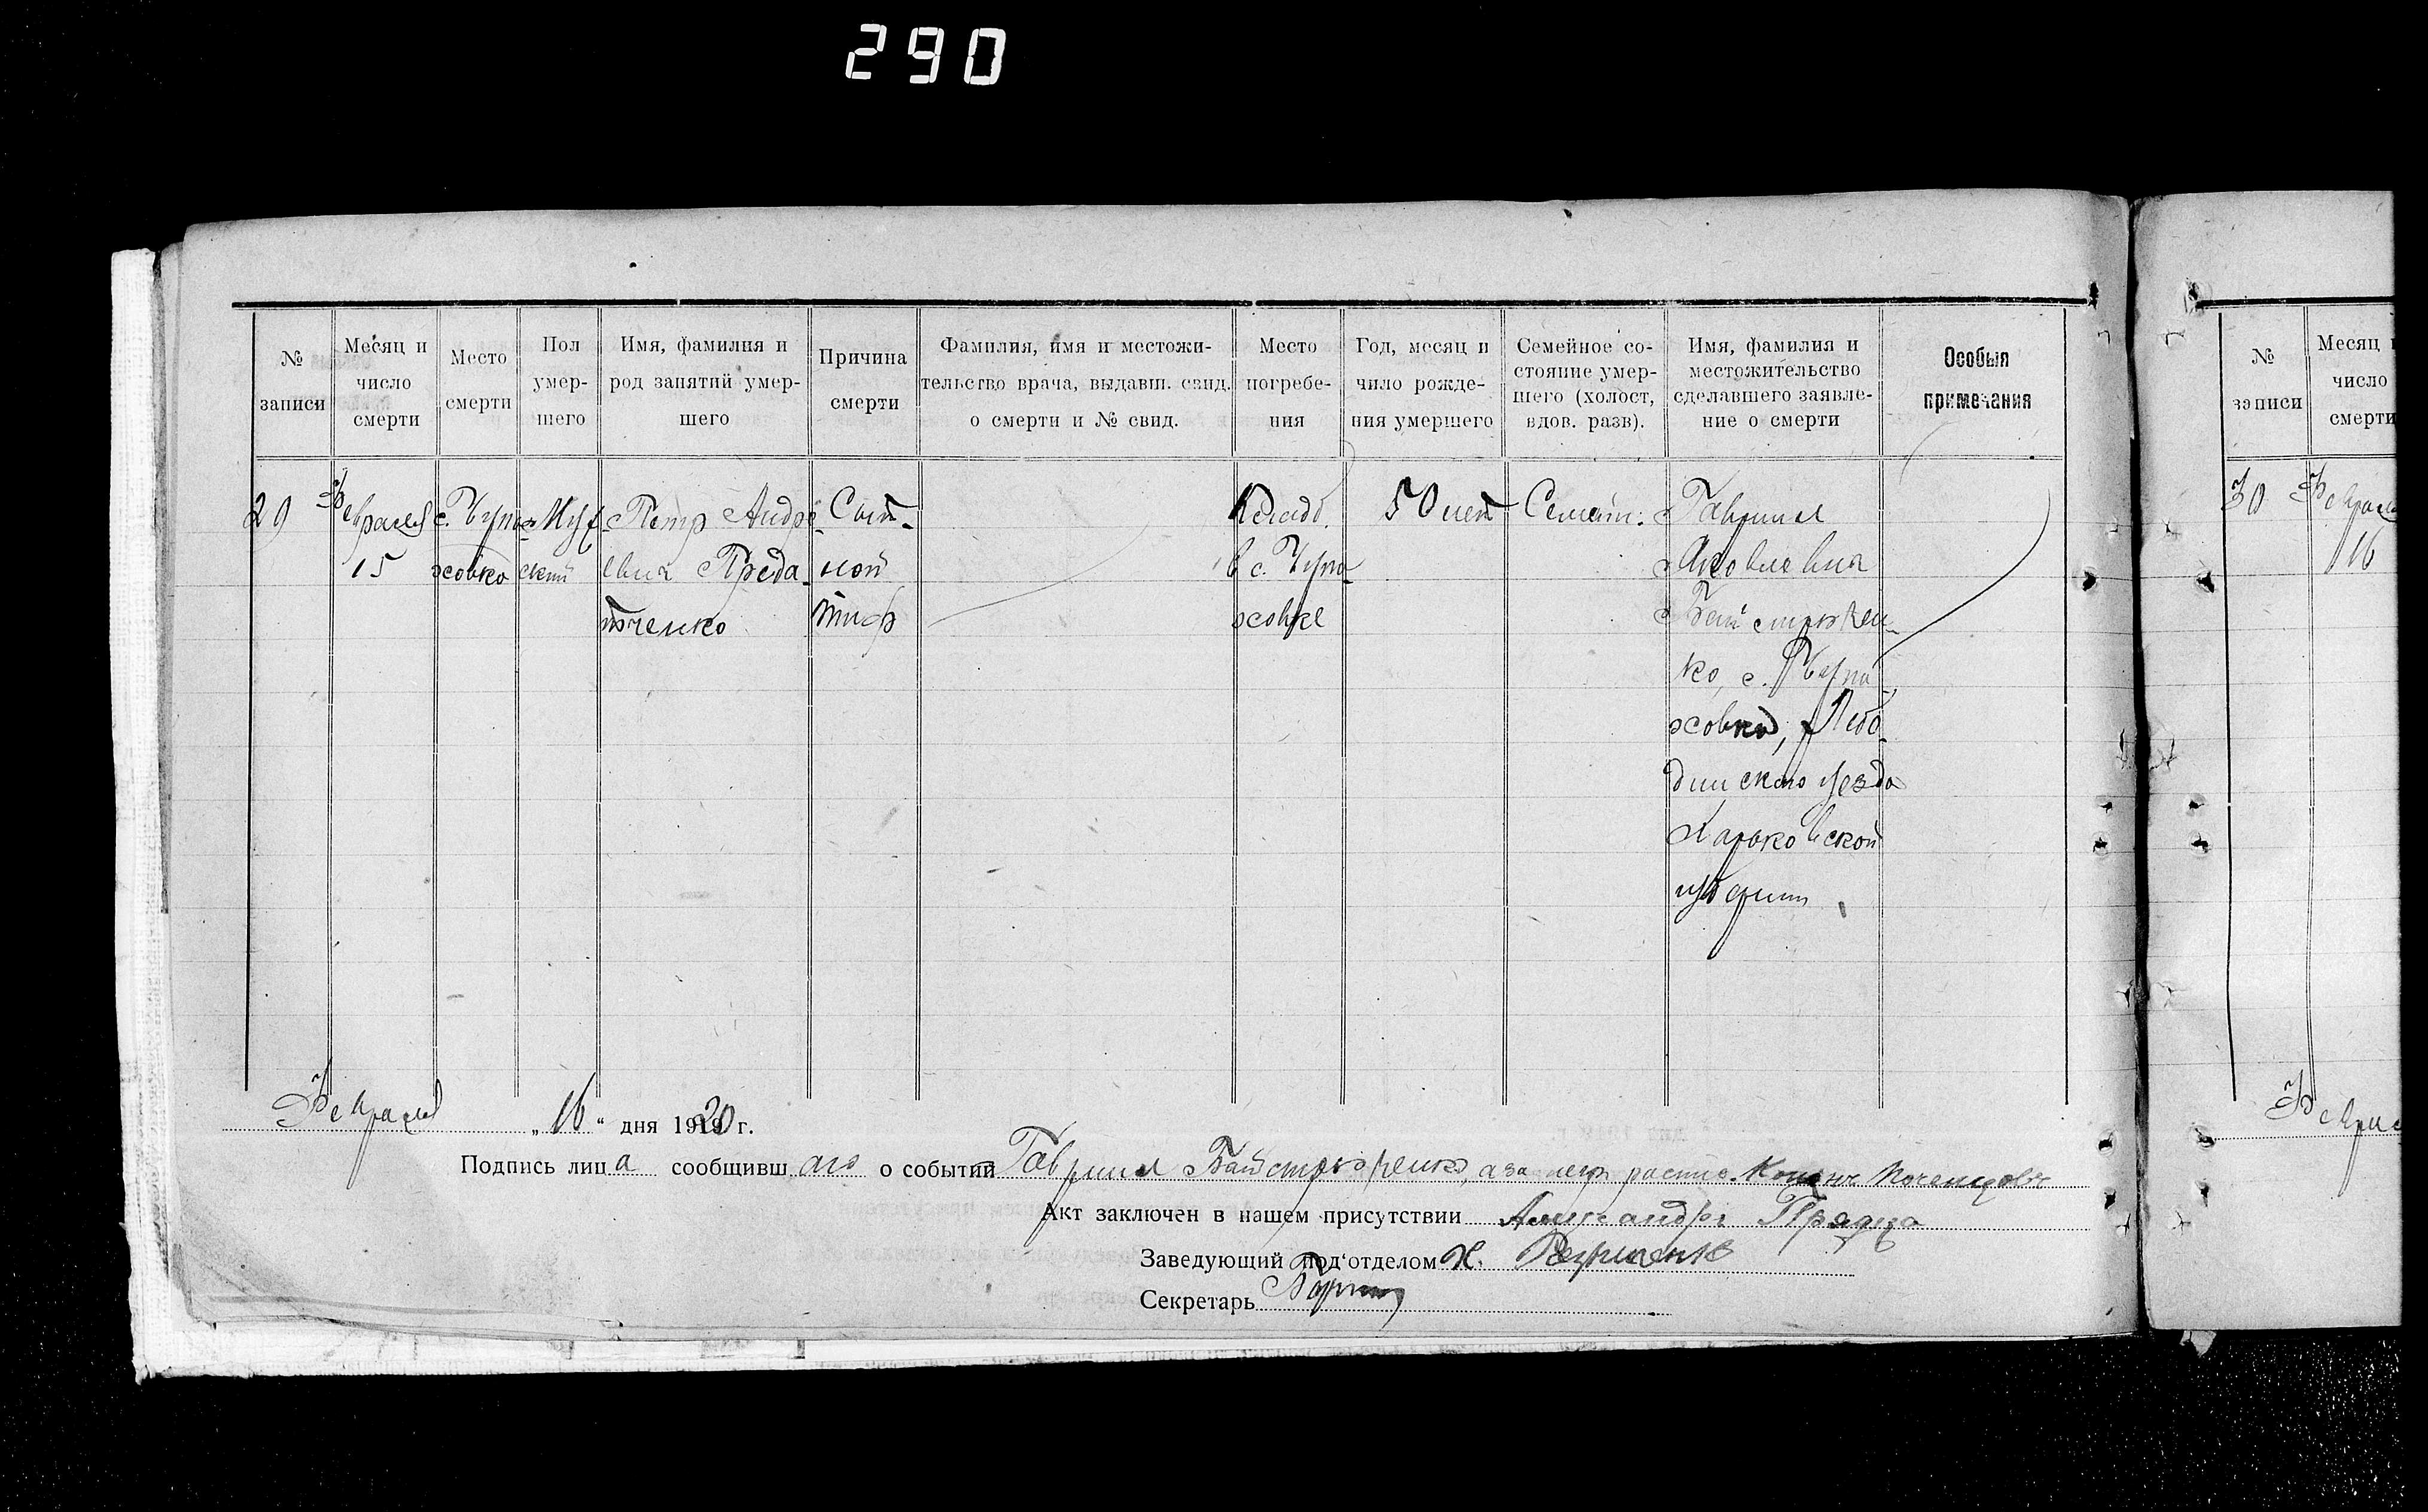 290
№ записи
Месяц и число смерти
Место смерти
Пол умер-шего
Имя, фамилия и род занятий умер-шего
Причина смерти
Фамилия, имя и местожи-тельство врача, выдавш. свид. о смерти и № свид.
Место погребе-ния
Год, месяц и чило рожде-ния умершего
Семейное со-стояние умер-шего (холост, вдов. разв).
Имя, фамилия и местожительство сделавшего заявле-ние о смерти
Особыя примечания
29
Февраля
15
с. Чупа-
ховка
Муж-
ский
Петр Андре-
евич Преда-
тченко
Сып-
ной
тиф
Кладб.
в с. Чупа-
ховке
50 лет
Семейн.
Гавриил
Яковлевич
Байстрючен-
ко, с. Чупа-
ховка, Лебе-
динского уезда
Харьковской
губернии
Февраля „16“ дня 1920 г.
Подпись лица сообщившаго о событии Гавриил Байстрюченко, а за негр
Акт заключен в нашем присутствии Александр
Заведующий под'отделом
Секретарь
№ записи
Месяц
число
смерти
30
Феврал
16
Феврал